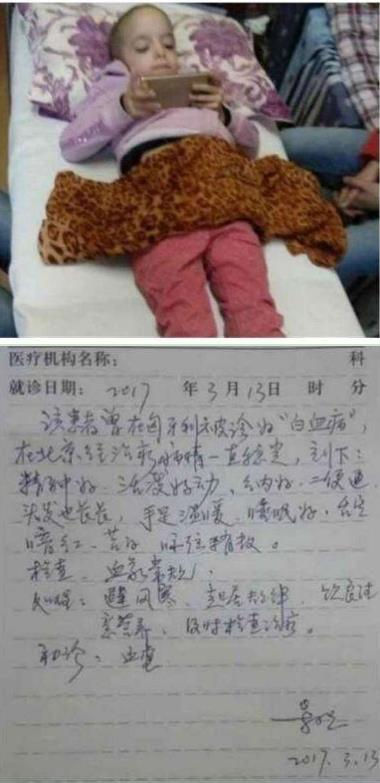 医疗机构名称： 科
就诊日期： 2017 年 3 月 13 日 时 分
该患者曾在匈牙利被诊好"白血病"，
在北京经治疗病情一直稳定，刻下：
精神好 活泼好动、纳好、二便通
头发也长长，手足温暖、睡眠好，舌尖
暗红、苔白
检查 血象常规
处理：避风寒 起居规律 饮食注
意营养、及时检查治疗。
初诊：血虚
2017.3.13